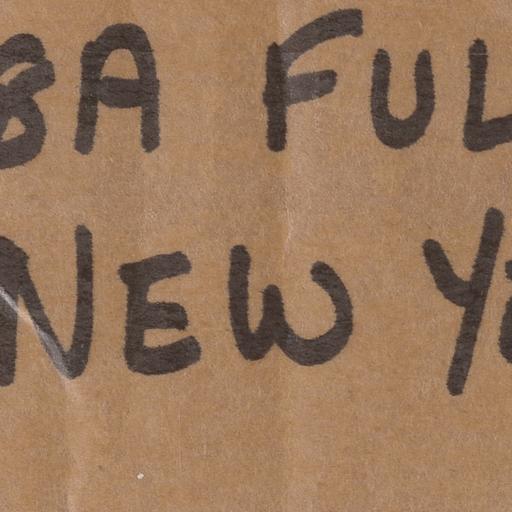 8A FUL
NEW Y